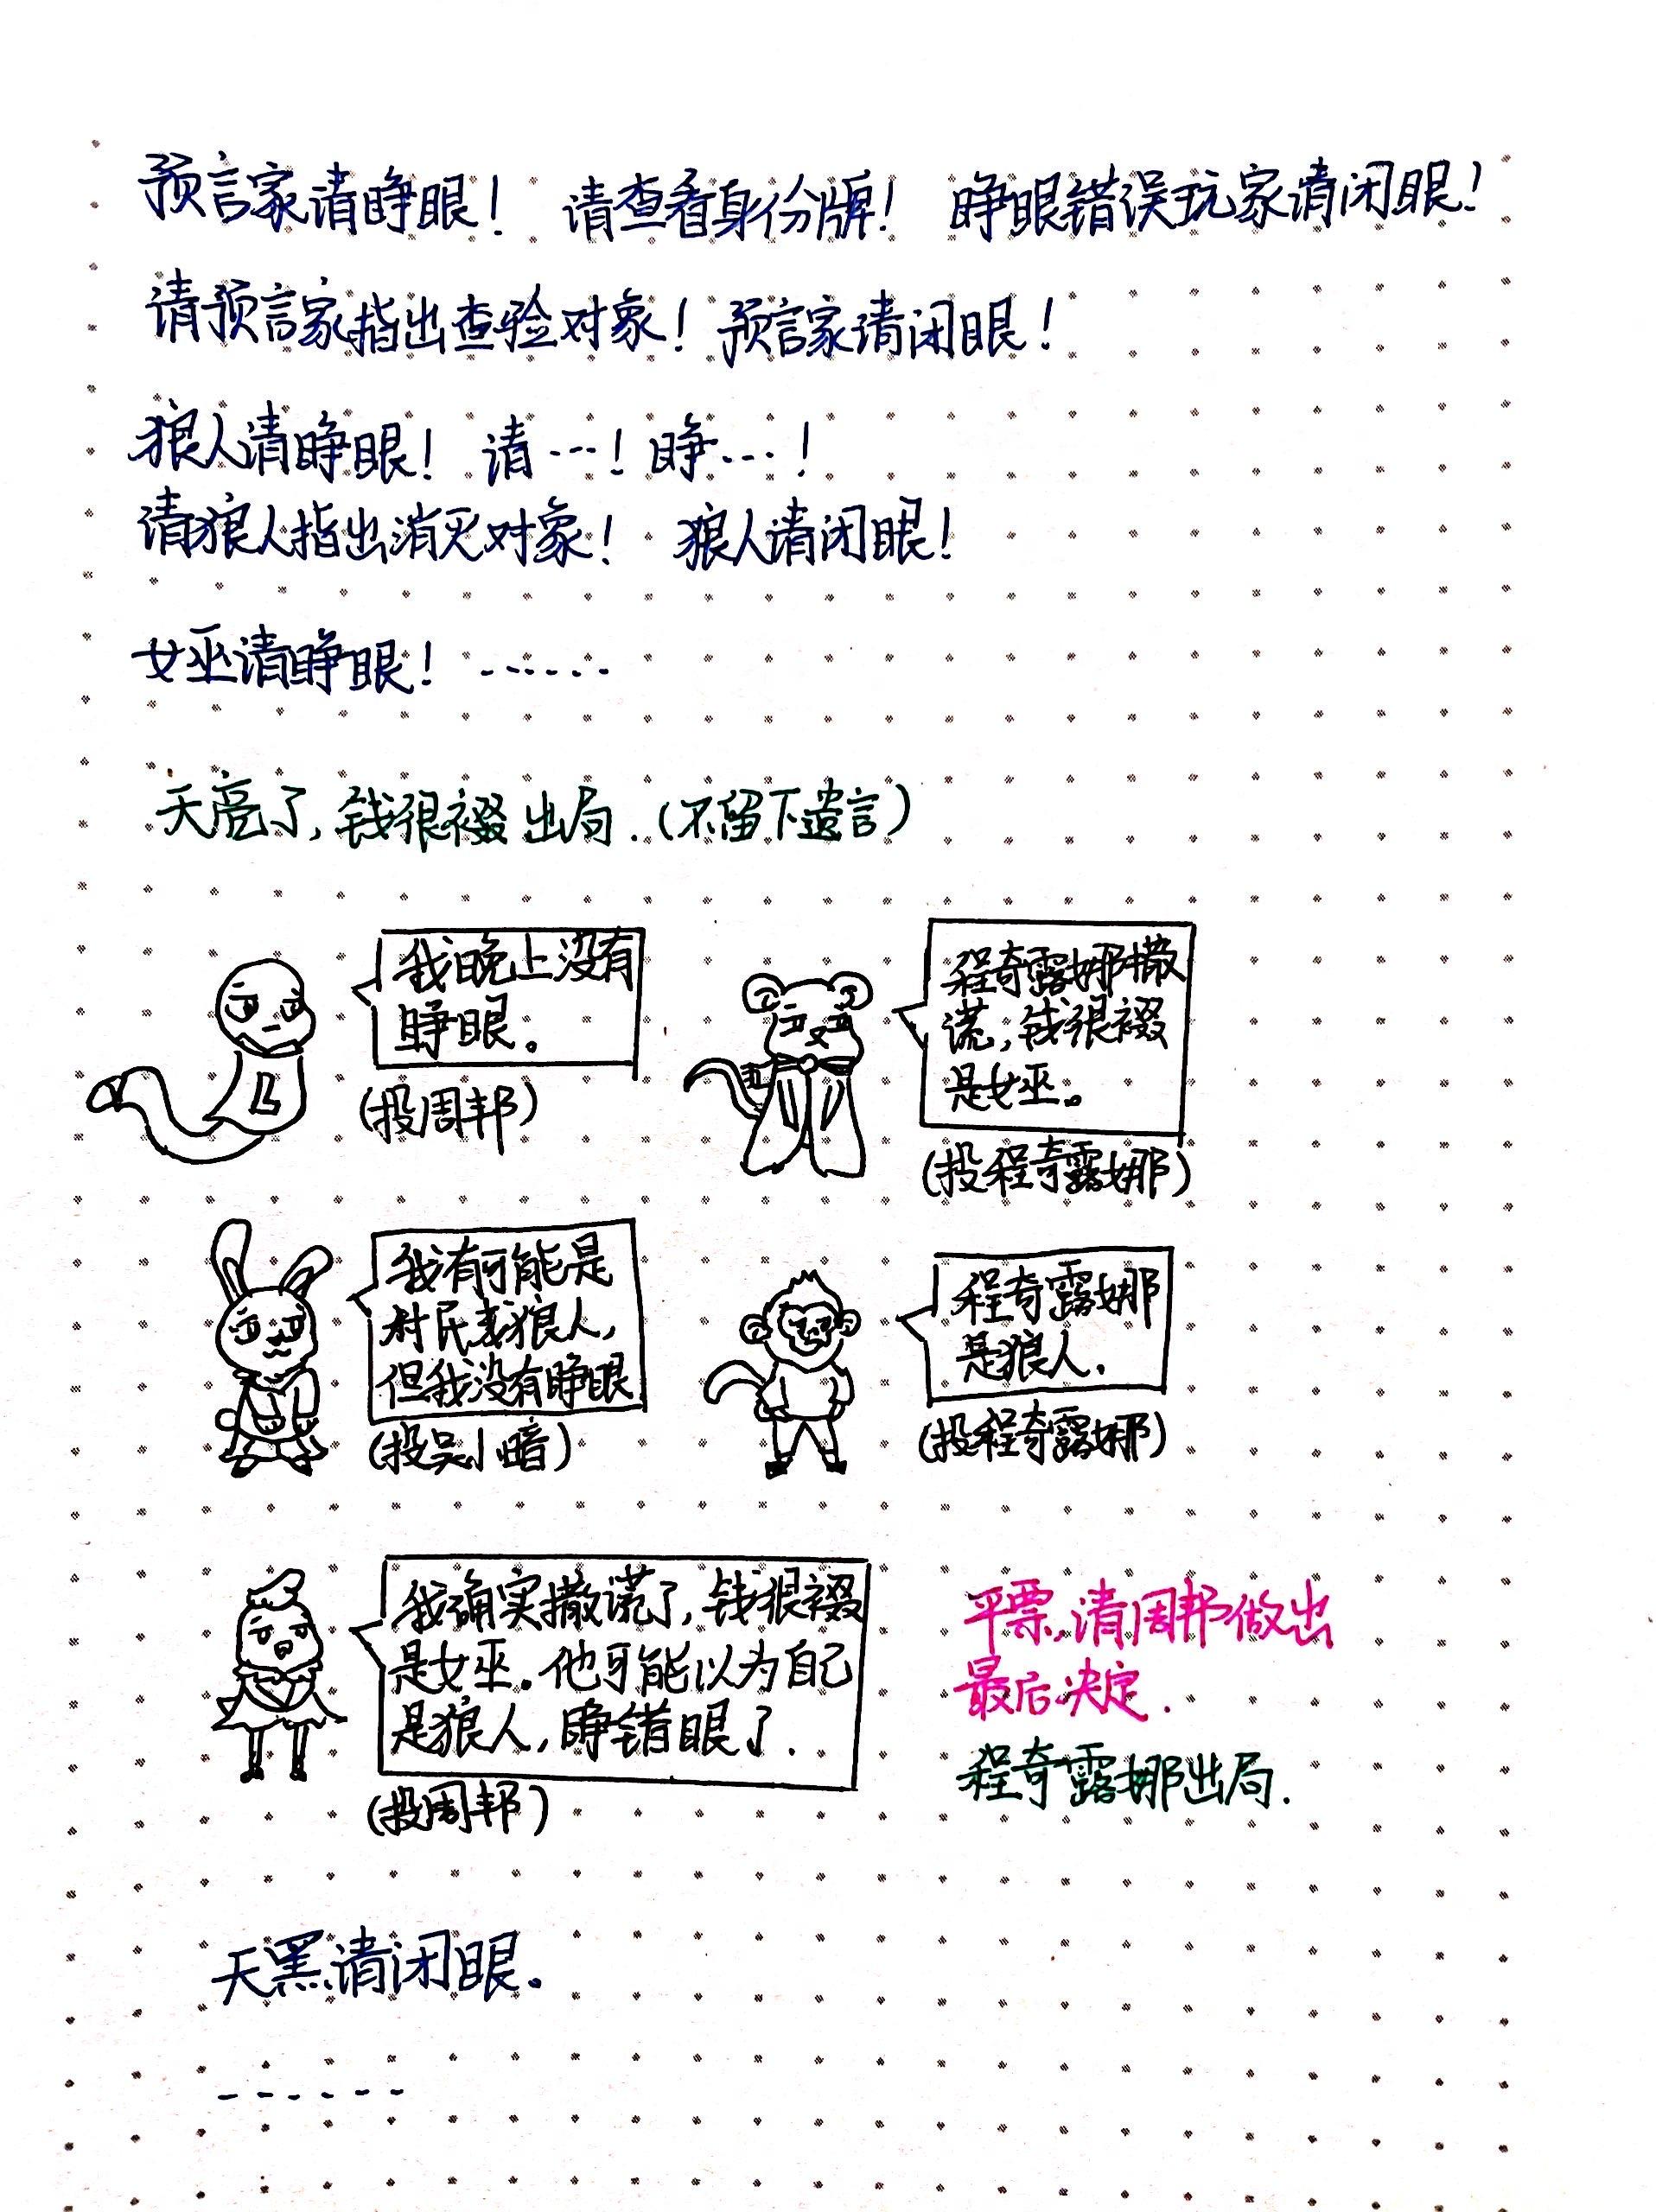 预言家请睁眼! 请查看身份牌! 睁眼错误玩家请闭眼!
请预言家指出查验对象! 预言家请闭眼!
狼人请睁眼! 请…! 睁…!
请狼人指出消灭对象! 狼人请闭眼!
女巫请睁眼! ……
天亮了, 钱很裰出局.(不留下遗言)
我晚上没有
睁眼。
(投周邦)
程奇露娜撒
谎,钱很裰
是女巫。
(投程奇露娜)
我有可能是
村民或狼人,
但我没有睁眼
(投吴小暗)
程奇露娜
是狼人.
(投程奇露娜)
我确实撒谎了,钱很裰
是女巫。他可能以为自己
是狼人,睁错眼了.
(投周邦)
平票,请周邦做出
最后决定.
程奇露娜出局.
天黑请闭眼。
……
L